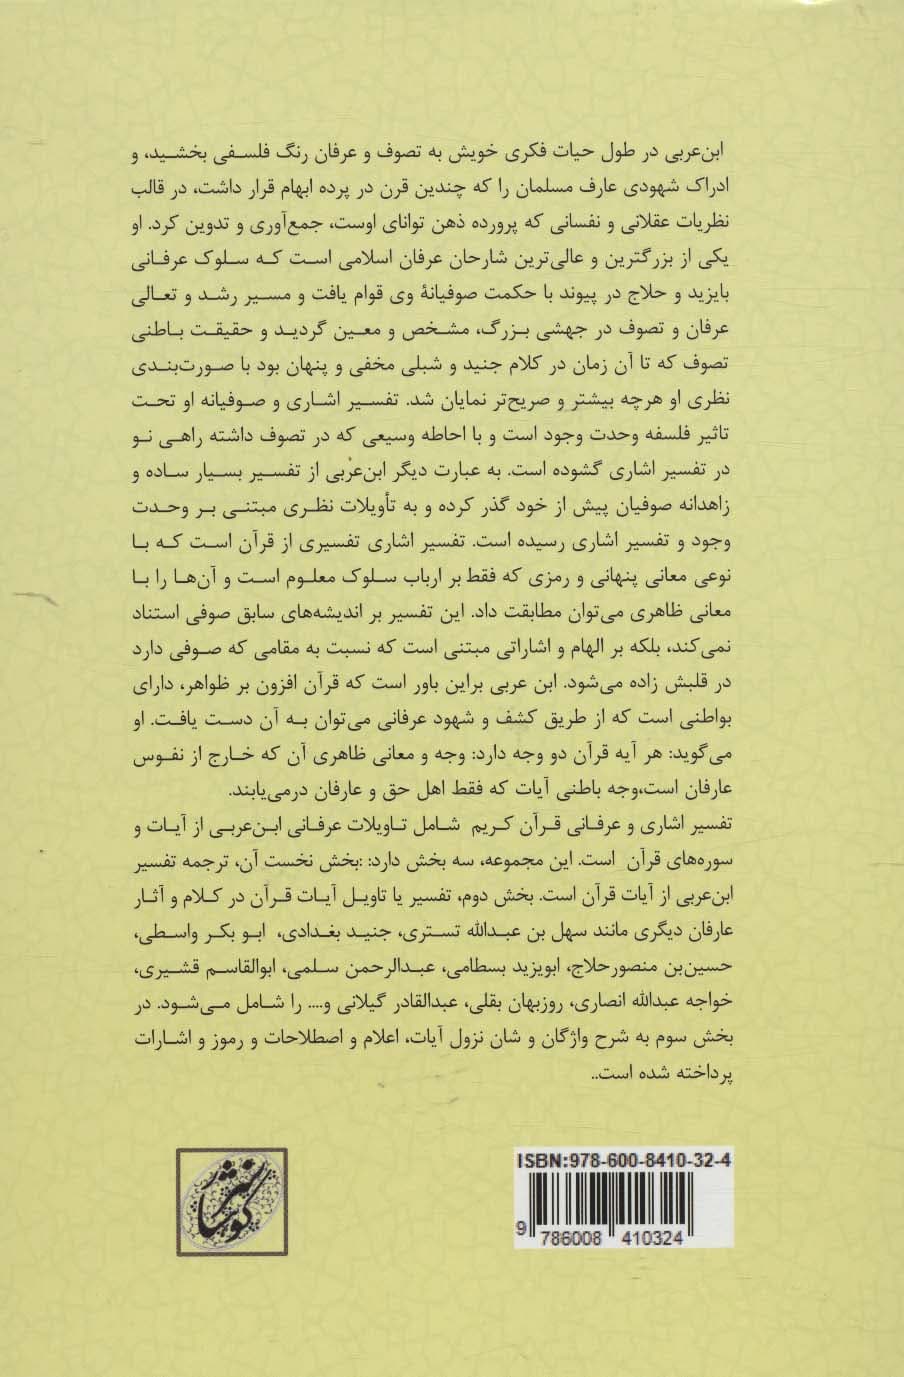 ابن‌عربی در طول حیات فکری خویش به تصوف و عرفان رنگ فلسفی بخشید، و
ادراک شهودی عارف مسلمان را که چندین قرن در پرده ابهام قرار داشت، در قالب
نظریات عقلانی و نفسانی که پرورده ذهن توانای اوست، جمع‌آوری و تدوین کرد. او
یکی از بزرگترین و عالی‌ترین شارحان عرفان اسلامی است که سلوک عرفانی
بایزید و حلاج در پیوند با حکمت صوفیانهٔ وی قوام یافت و مسیر رشد و تعالی
عرفان و تصوف در جهشی بزرگ، مشخص و معین گردید و حقیقت باطنی
تصوف که تا آن زمان در کلام جنید و شبلی مخفی و پنهان بود با صورت‌بندی
نظری او هرچه بیشتر و صریح‌تر نمایان شد. تفسیر اشاری و صوفیانه او تحت
تاثیر فلسفه وحدت وجود است و با احاطه وسیعی که در تصوف داشته راهی نو
در تفسیر اشاری گشوده است. به عبارت دیگر ابن‌عربی از تفسیر بسیار ساده و
زاهدانه صوفیان پیش از خود گذر کرده و به تأویلات نظری مبتنی بر وحدت
وجود و تفسیر اشاری رسیده است. تفسیر اشاری تفسیری از قرآن است که با
نوعی معانی پنهانی و رمزی که فقط بر ارباب سلوک معلوم است و آن‌ها را با
معانی ظاهری می‌توان مطابقت داد. این تفسیر بر اندیشه‌های سابق صوفی استناد
نمی‌کند، بلکه بر الهام و اشاراتی مبتنی است که نسبت به مقامی که صوفی دارد
در قلبش زاده می‌شود. ابن عربی براین باور است که قرآن افزون بر ظواهر، دارای
بواطنی است که از طریق کشف و شهود عرفانی می‌توان به آن دست یافت. او
می‌گوید: هر آیه قرآن دو وجه دارد: وجه و معانی ظاهری آن که خارج از نفوس
عارفان است،وجه باطنی آیات که فقط اهل حق و عارفان درمی‌یابند.
تفسیر اشاری و عرفانی قرآن کریم شامل تاویلات عرفانی ابن‌عربی از آیات و
سوره‌های قرآن است. این مجموعه، سه بخش دارد: :بخش نخست آن، ترجمه تفسیر
ابن‌عربی از آیات قرآن است. بخش دوم، تفسیر یا تاویل آیات قرآن در کلام و آثار
عارفان دیگری مانند سهل بن عبدالله تستری، جنید بغدادی، ابو بکر واسطی،
حسین‌بن منصورحلاج، ابویزید بسطامی، عبدالرحمن سلمی، ابوالقاسم قشیری،
خواجه عبدالله انصاری، روزبهان بقلی، عبدالقادر گیلانی و.... را شامل می‌شود. در
بخش سوم به شرح واژگان و شان نزول آیات، اعلام و اصطلاحات و رموز و اشارات
پرداخته شده است..
ISBN:978-600-8410-32-4
9 786008 410324